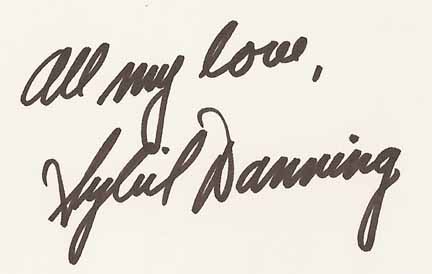 All my love,
Sybil Danning